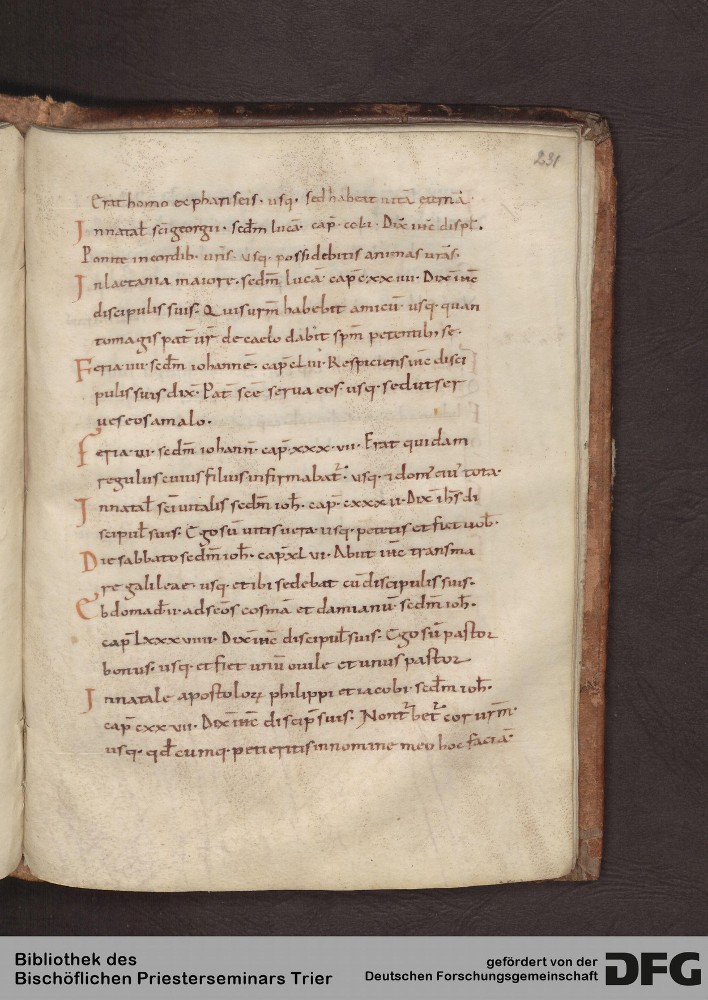 231
Erat homo ex phariseis · usq · sed habeat uitā eternā·
Innatał sci georgii · scđm lucā · cap̄ · ccli · Dix̄ ihc̄ discipł·
Ponite incordib· uris̄ · usq · possidebitis animas uras̄·
Inlaetania maiore · scđm lucā cap̄ cxxiiii · Dix̄ ihc̄
discipulis suis · Quis urm̄ habebit amicū · usq · quan
tomagis pat̄ ur̄ decaelo dabit spm̄ petentib; se·
Feria iiii · scđm iohannē · cap̄ clvi · Respiciens ihc̄ disci
pulis suis dix̄ · Pat̄ scē serua eos · usq · sedutser
ueseosamalo·
Feria · ui · scđm iohann̄ · cap̄ · xxx · vii · Erat quidam
regulus cuius filius infirmabat̄ · usq · & dom' eius tota·
Innatał sci uitalis scđm ioh̄ · cap̄ cxxx ii · Dix̄ ihs̄ di
scipuł suis · Ego sū uitis uera · usq · petetis et fiet uob̄·
Die sabbato scđm ioh̄ · cap̄ xl vi · Abiit ihc̄ transma
re galileae · usq · et ibi sedebat cū discipulis suis·
Ebdomađ ii · adscos̄ cosmā et damianū · scđm ioh̄·
cap̄ lxxxviiii · Dix̄ ihc̄ discipuł suis · Ego sū pastor
bonus · usq · et fiet unū ouile et unus pastor
Innatale apostoloꝝ philippi et iacobi · scđm ioh̄·
cap̄ cxx vii · Dix̄ ihc̄ discip̄ suis · Non turbet̄ cor urm̄·
usq · qđcumq · petieritis innomine meo hoc faciā·
Bibliothek des
Bischöflichen Priesterseminars Trier
gefördert von der
Deutschen Forschungsgemeinschaft
DFG